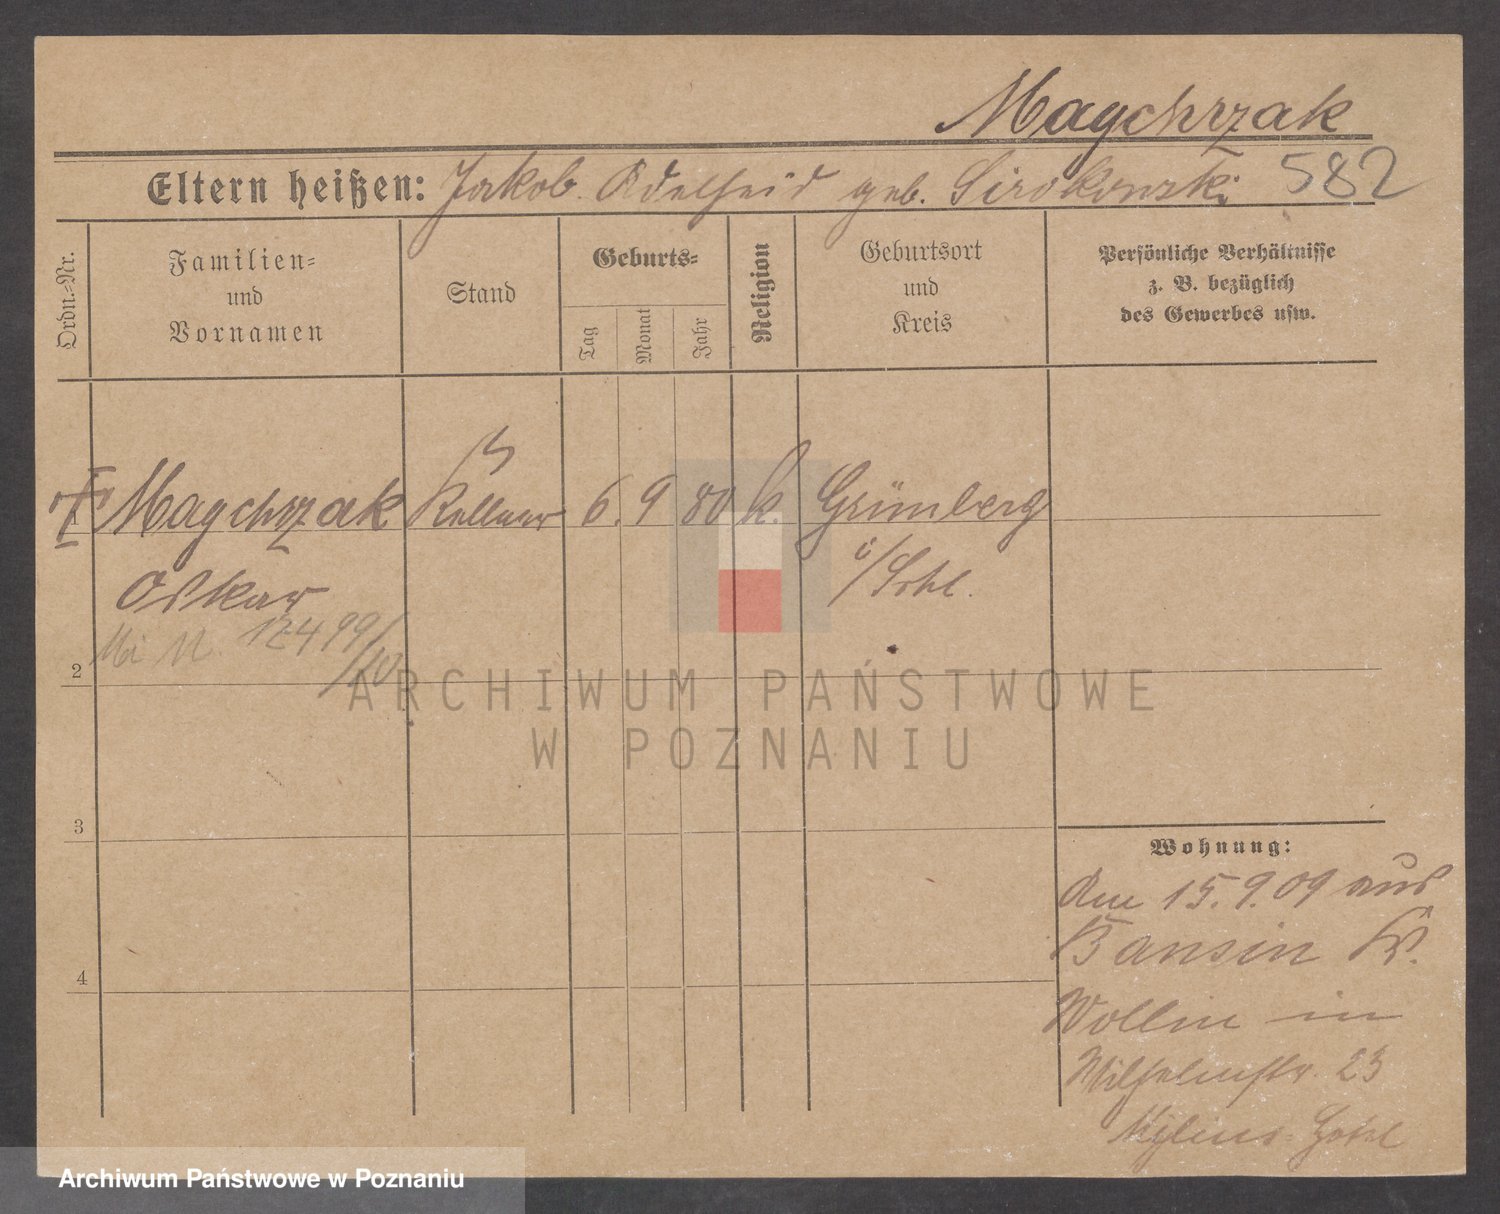 Maychrzak
Eltern heißen: Jakob Adelheid geb. Sirokowski 582
Ordn.-Nr.
Familien-
und
Vornamen
Stand
Geburts-
Tag
Monat
Jahr
Religion
Geburtsort
und
Kreis
Persönliche Verhältnisse
z. B. bezüglich
des Gewerbes usw.
1 Maychrzak Kellner 6. 9 80 k. Grünberg
Oskar i/Schl.
12499/10
2
3
4
Wohnung:
Am 15.9.09 aus
Bansin Kr.
Wollin in
Wilhelmstr. 23
Mylius Hotel
ARCHIWUM PAŃSTWOWE
W POZNANIU
Archiwum Państwowe w Poznaniu